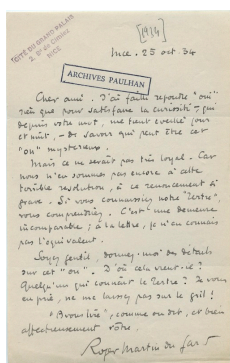 [1934]
CITÉ DU GRAND PALAIS
2, Bd de Cimiez
NICE
Nice. 25 oct. 34
ARCHIVES PAULHAN
Cher ami. J'ai failli répondre "oui"
rien que pour satisfaire la curiosité, qui
depuis votre mot, me tient éveillé jour
et nuit, – de savoir qui peut être cet
"on" mystérieux.
Mais ce ne serait pas très loyal. Car
nous n'en sommes pas encore à cette
terrible résolution, à ce renoncement si
grave. Si vous connaissiez notre "Tertre",
vous comprendriez. C'est une demeure
incomparable ; à la lettre, je n'en connais
pas l'équivalent.
Soyez gentil, donnez-moi des détails
sur cet "on". D'où cela vient-il ?
Quelqu'un qui connaît le Tertre ? Je vous
en prie, ne me laissez pas sur le gril !
"Bvous lire", comme on dit, et bien
affectueusement vôtre.
Roger Martin du Gard